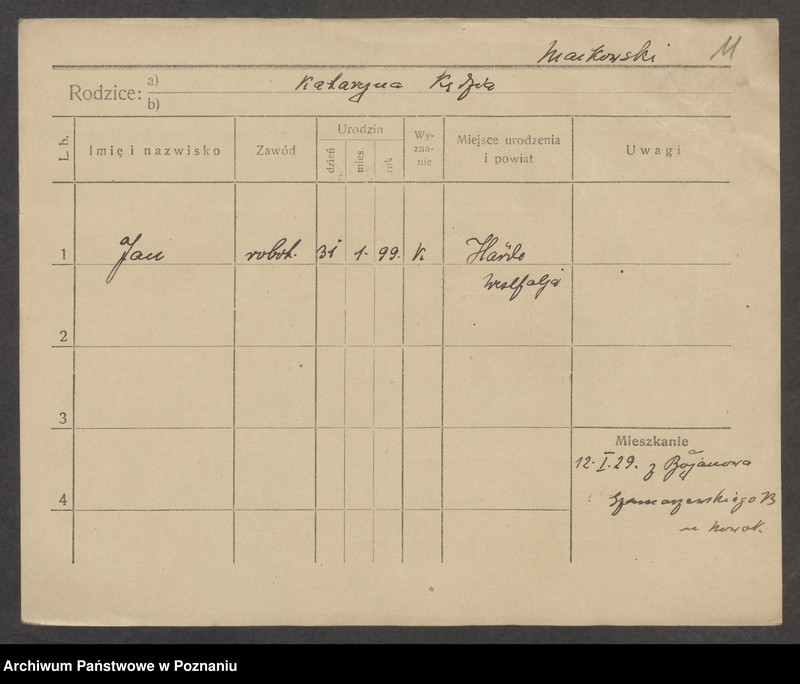 Maćkowski M
Rodzice: a) Katarzyna Kędzia
b)
L. b. Imię i nazwisko Zawód Urodzin dzień mies. rok Wy-zna-nie Miejsce urodzenia i powiat Uwagi
1 Jan robot. 31 1. 99. k
Westfalja
2
3
Mieszkanie
12. I. 29. z Bojanowa
4 Szamarzewskiego 13
u Nowak.
Archiwum Państwowe w Poznaniu